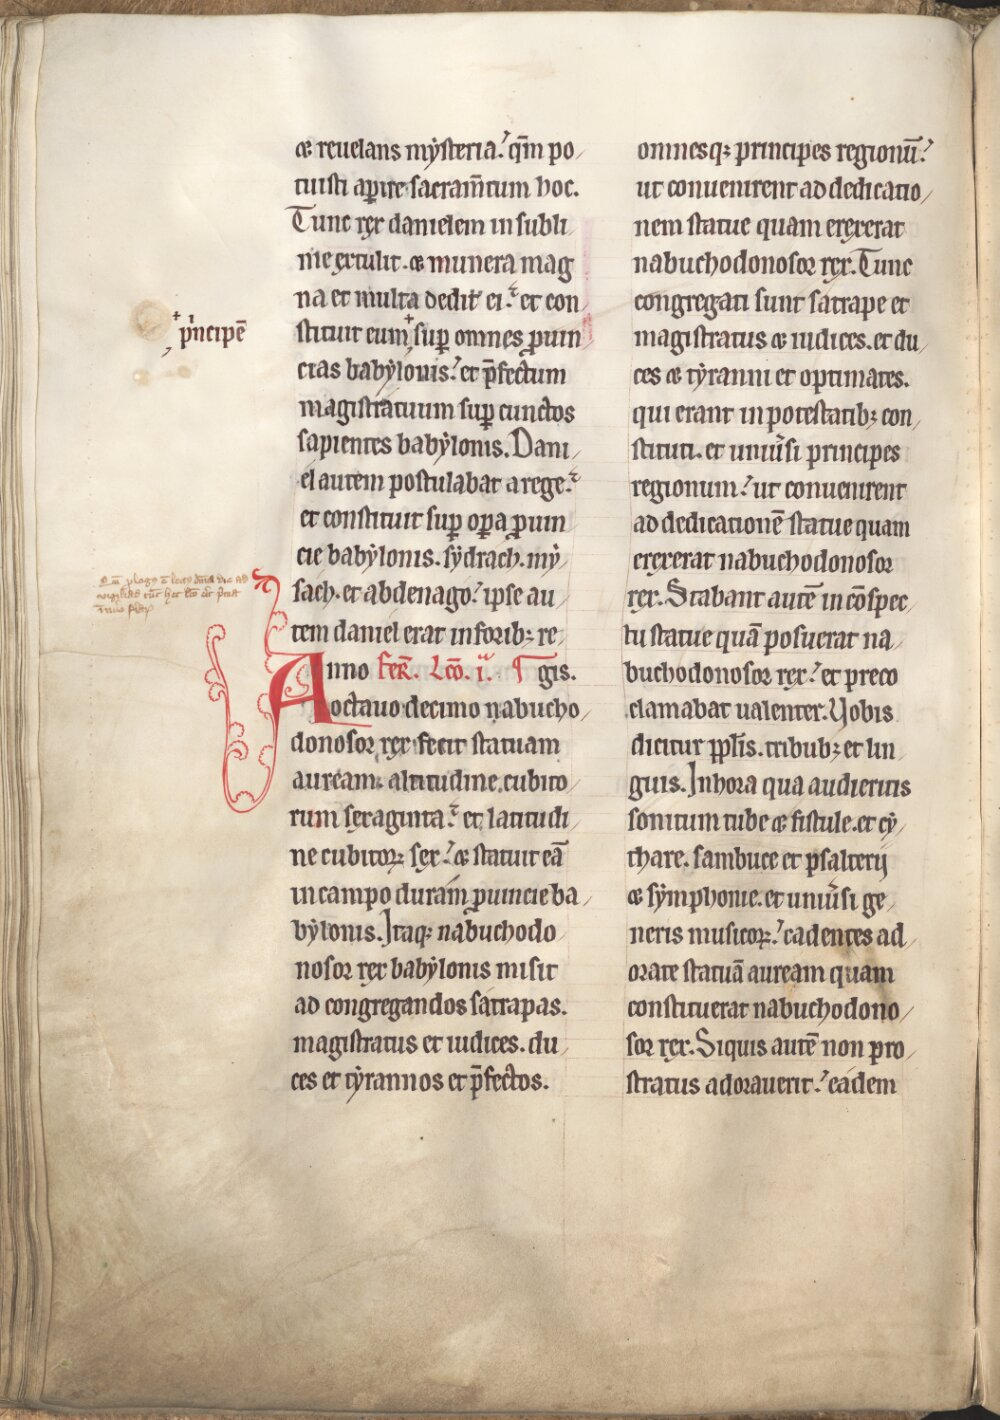 & reuelans mẏsteria. qm̄ po
tuisti aꝑire sacram̄tum hoc.
Tunc rex danielem in subli
me extulit. & munera mag
na et multa dedit ei. et con
stituit eum + suꝑ omnes ꝓuin
+ pͥncipē
cias babẏlonis. et p̄fectum
magistratuum suꝑ cunctos
sapientes babẏlonis. Dani
el autem postulabat a rege.
et constituit suꝑ oꝑa ꝓuin
cie babẏlonis. sẏdrach. mẏ
sach. et abdenago. ipse au
tem daniel erat in foribꝫ re
Anno fer̄. Lc̄o. i.ͣ ¶ gis.
octauo decimo nabucho
donosor rex fecit statuam
auream. altitudine cubito
rum sexaginta. et latitudi
ne cubitoꝝ sex. & statuit eā
in campo duram ꝓuincie ba
bẏlonis. Itaqꝫ nabuchodo
nosor rex babẏlonis misit
ad congregandos satrapas.
magistratus et iudices. du
ces et tẏrannos et p̄fectos.
omnesqꝫ principes regionū.
ut conuenirent ad dedicatio
nem statue quam erexerat
nabuchodonosor rex. Tunc
congregati sunt satrape et
magistratus & iudices. et du
ces & tẏranni et optimates.
qui erant in potestatibꝫ con
stituti. et uniu̾si principes
regionum. ut conuenirent
ad dedicationē statue quam
erexerat nabuchodonosor
rex. Stabant autē in cōspec
tu statue quā posuerat na
buchodonosor rex. et preco
clamabat ualenter. Uobis
dicitur ppl̄is. tribubꝫ et lin
guis. In hora qua audieritis
sonitum tube & fistule. et cẏ
thare. sambuce et psalterij
& sẏmphonie. et uniu̾si ge
neris musicoꝝ. cadentes ad
orate statuā auream quam
constituerat nabuchodono
sor rex. Siquis autē non pro
stratus adorauerit. eadem